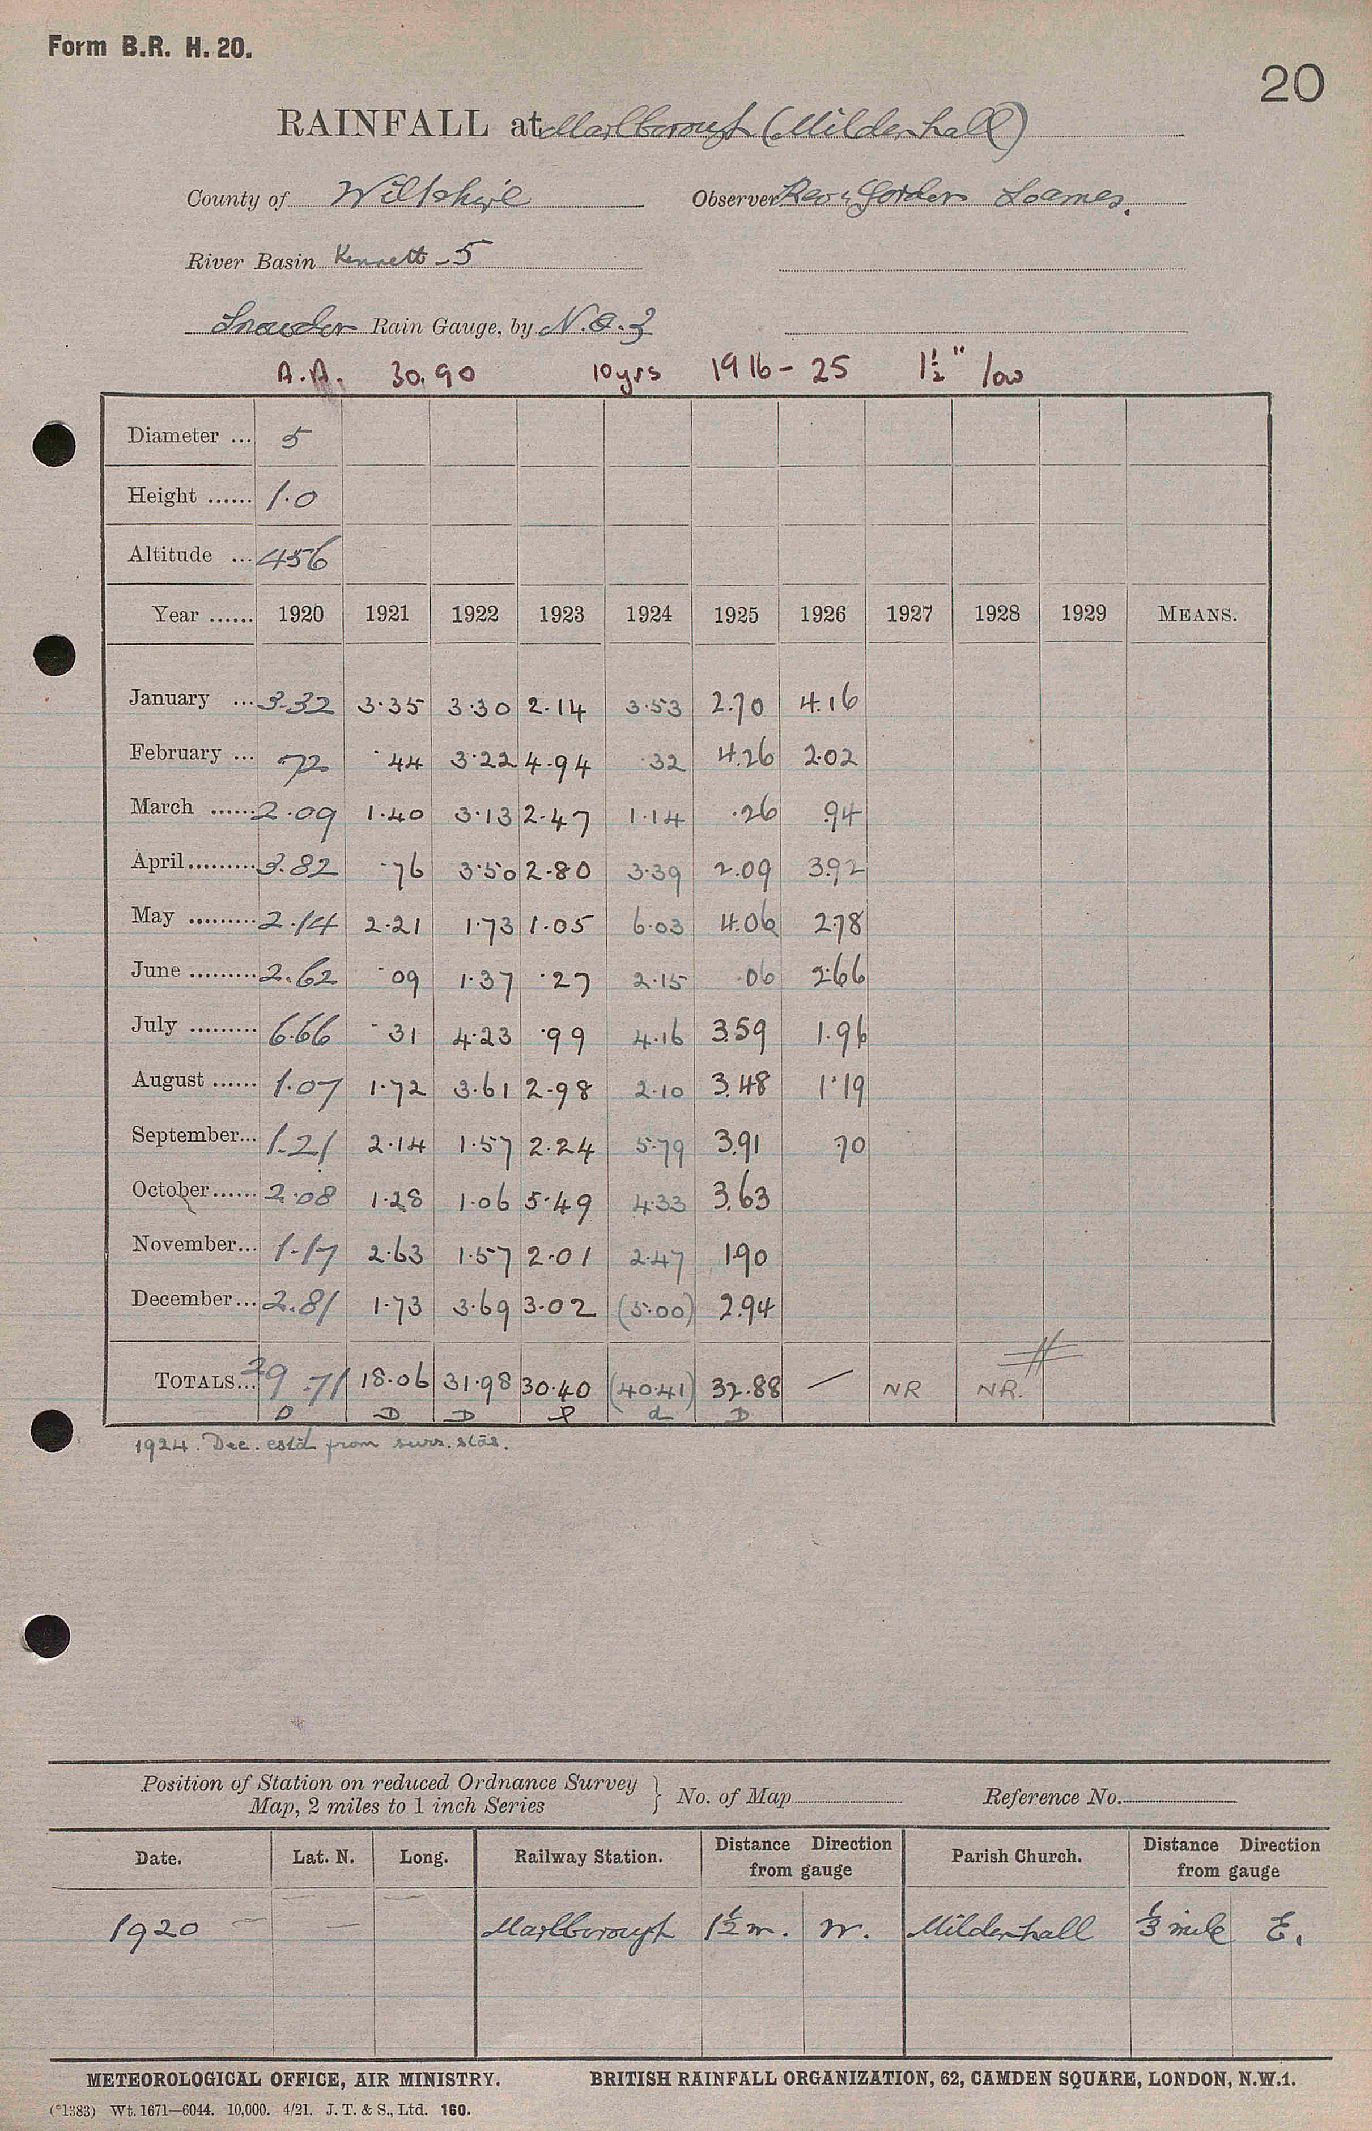 Form B.R. H. 20.
20
RAINFALL at Marlborough (Mildenhall)
County of Wiltshire Observer Rev. Gordon Soames.
River Basin Kennett - 5
Snowdon Rain Gauge, by N. & Z
A.A. 30.90 10yrs 1916-25 1½" low
Diameter ... 5
Height ...... 1.0
Altitude ... 456
Year ...... 1920 1921 1922 1923 1924 1925 1926 1927 1928 1929 MEANS.
January ... 3.32 3.35 3.30 2.14 3.53 2.70 4.16
February ... .72 .44 3.22 4.94 .32 4.26 2.02
March ...... 2.09 1.40 3.13 2.47 1.14 .26 .94
April......... 3.82 .76 3.50 2.80 3.39 2.09 3.92
May ......... 2.14 2.21 1.73 1.05 6.03 4.06 2.78
June ......... 2.62 .09 1.37 .27 2.15 .06 2.66
July ......... 6.66 .31 4.23 .99 4.16 3.59 1.96
August ...... 1.07 1.72 3.61 2.98 2.10 3.48 1.19
September... 1.21 2.14 1.57 2.24 5.79 3.91 70
October...... 2.08 1.28 1.06 5.49 4.33 3.63
November... 1.17 2.63 1.57 2.01 2.47 1.90
December... 2.81 1.73 3.69 3.02 (5.00) 2.94
TOTALS... 29.71 18.06 31.98 30.40 (40.41) 32.88 — NR NR.
D D D d D
1924. Dec. estd from surr. stns.
Position of Station on reduced Ordnance Survey
Map, 2 miles to 1 inch Series } No. of Map Reference No.
Date. Lat. N. Long. Railway Station. Distance Direction from gauge Parish Church. Distance Direction from gauge
1920 — — Marlborough 1½ m. W. Mildenhall ⅓ mile E.
METEOROLOGICAL OFFICE, AIR MINISTRY. BRITISH RAINFALL ORGANIZATION, 62, CAMDEN SQUARE, LONDON, N.W.1.
(*1383) Wt. 1671—6044. 10,000. 4/21. J. T. & S., Ltd. 160.